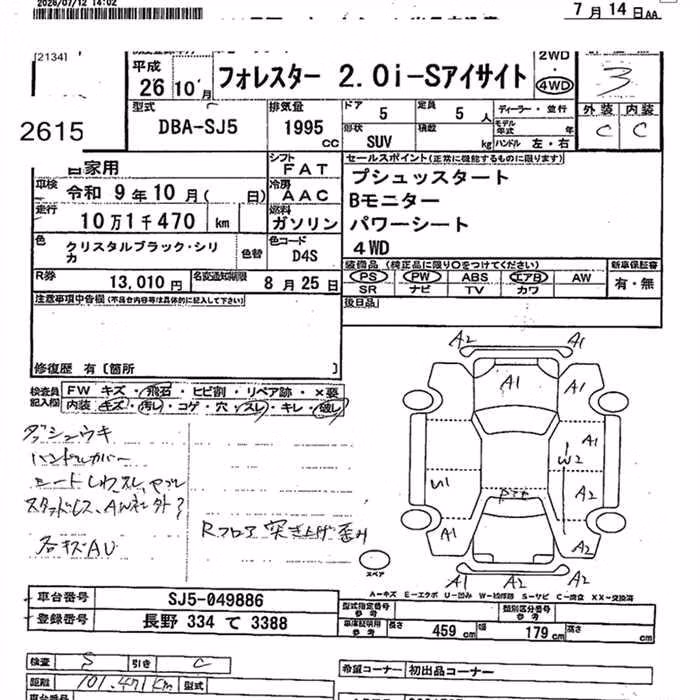 2026/07/12 14:02
7月14日AA
[2134]
平成 26年10月
フォレスター 2.0i-Sアイサイト
2WD
4WD
3
2615
型式
DBA-SJ5
排気量
1995 CC
ドア 5
定員 5 人
形状 SUV
積載 kg
ディーラー・並行
モデル年式 年
ハンドル 左・右
外装 内装
C C
自家用
シフト FAT
車検 令和 9年10月( 日)
冷房 AAC
走行 10万1千470 km
燃料 ガソリン
色 クリスタルブラック・シリカ
色替
色コード D4S
R券 13,010円
名変通知期限 8月25日
セールスポイント(正常に機能するものに限ります)
プシュッスタート
Bモニター
パワーシート
4WD
装備品(純正品に限り○をつけてください)
PS PW ABS エアB AW
SR ナビ TV カワ
新車保証書
有・無
後日品
注意事項申告欄(不具合内容等は具体的に記入して下さい)
修復歴 有〔箇所 〕
検査員記入欄
FW キズ・飛石・ヒビ割・リペア跡・×要
内装・キズ・汚レ・コゲ・穴・スレ・キレ・破レ
ダッシュウキ
ハンドルカバー
シートしわ、スレ、ヤブレ
各キズAU
Rフロア 突き上げ歪み
A2 A1
A1 A1
A1
W2
A2
A1 A2
A1 A2
スペア
A-キズ E-エクボ U-凹み W-補修跡 S-サビ C-腐食 XX-交換済
車台番号 SJ5-049886
登録番号 長野 334 て 3388
型式指定番号 参考
類別区分番号 参考
車庫証明用 参考
長さ 459 cm
幅 179 cm
高さ cm
検査 S
引き C
距離 101.471km
型式
車台番号
希望コーナー 初出品コーナー